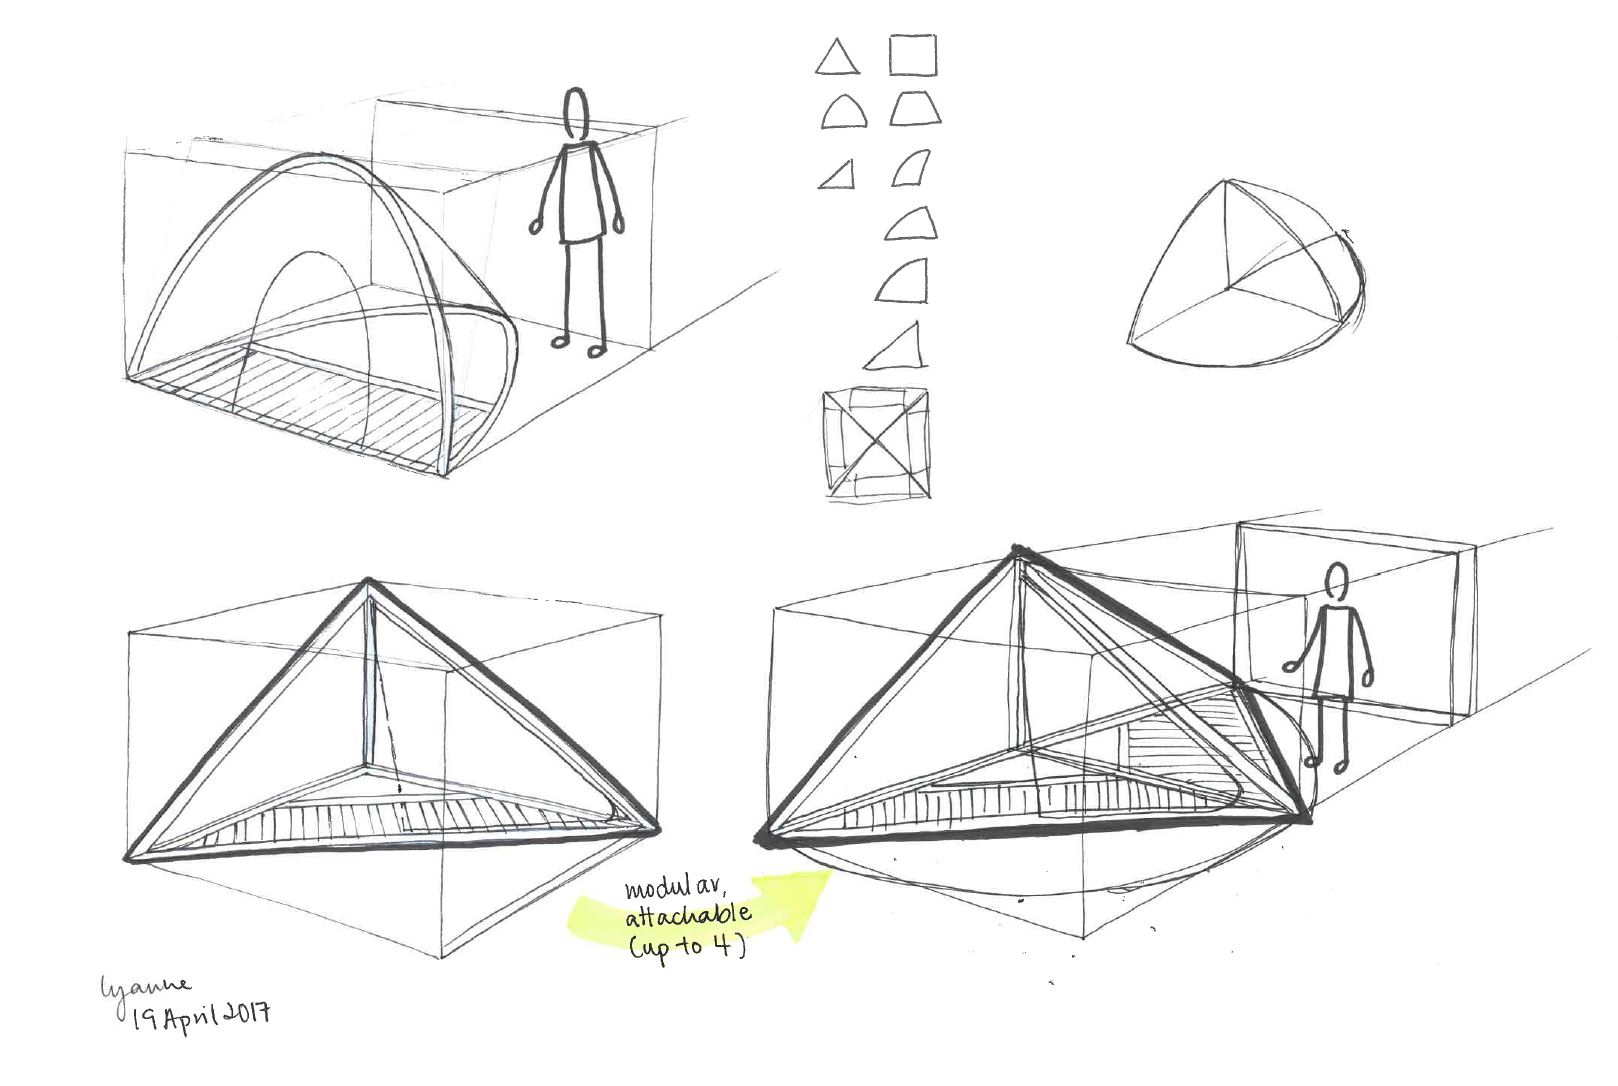 modular,
attachable
(up to 4)
lyanne
19 April 2017